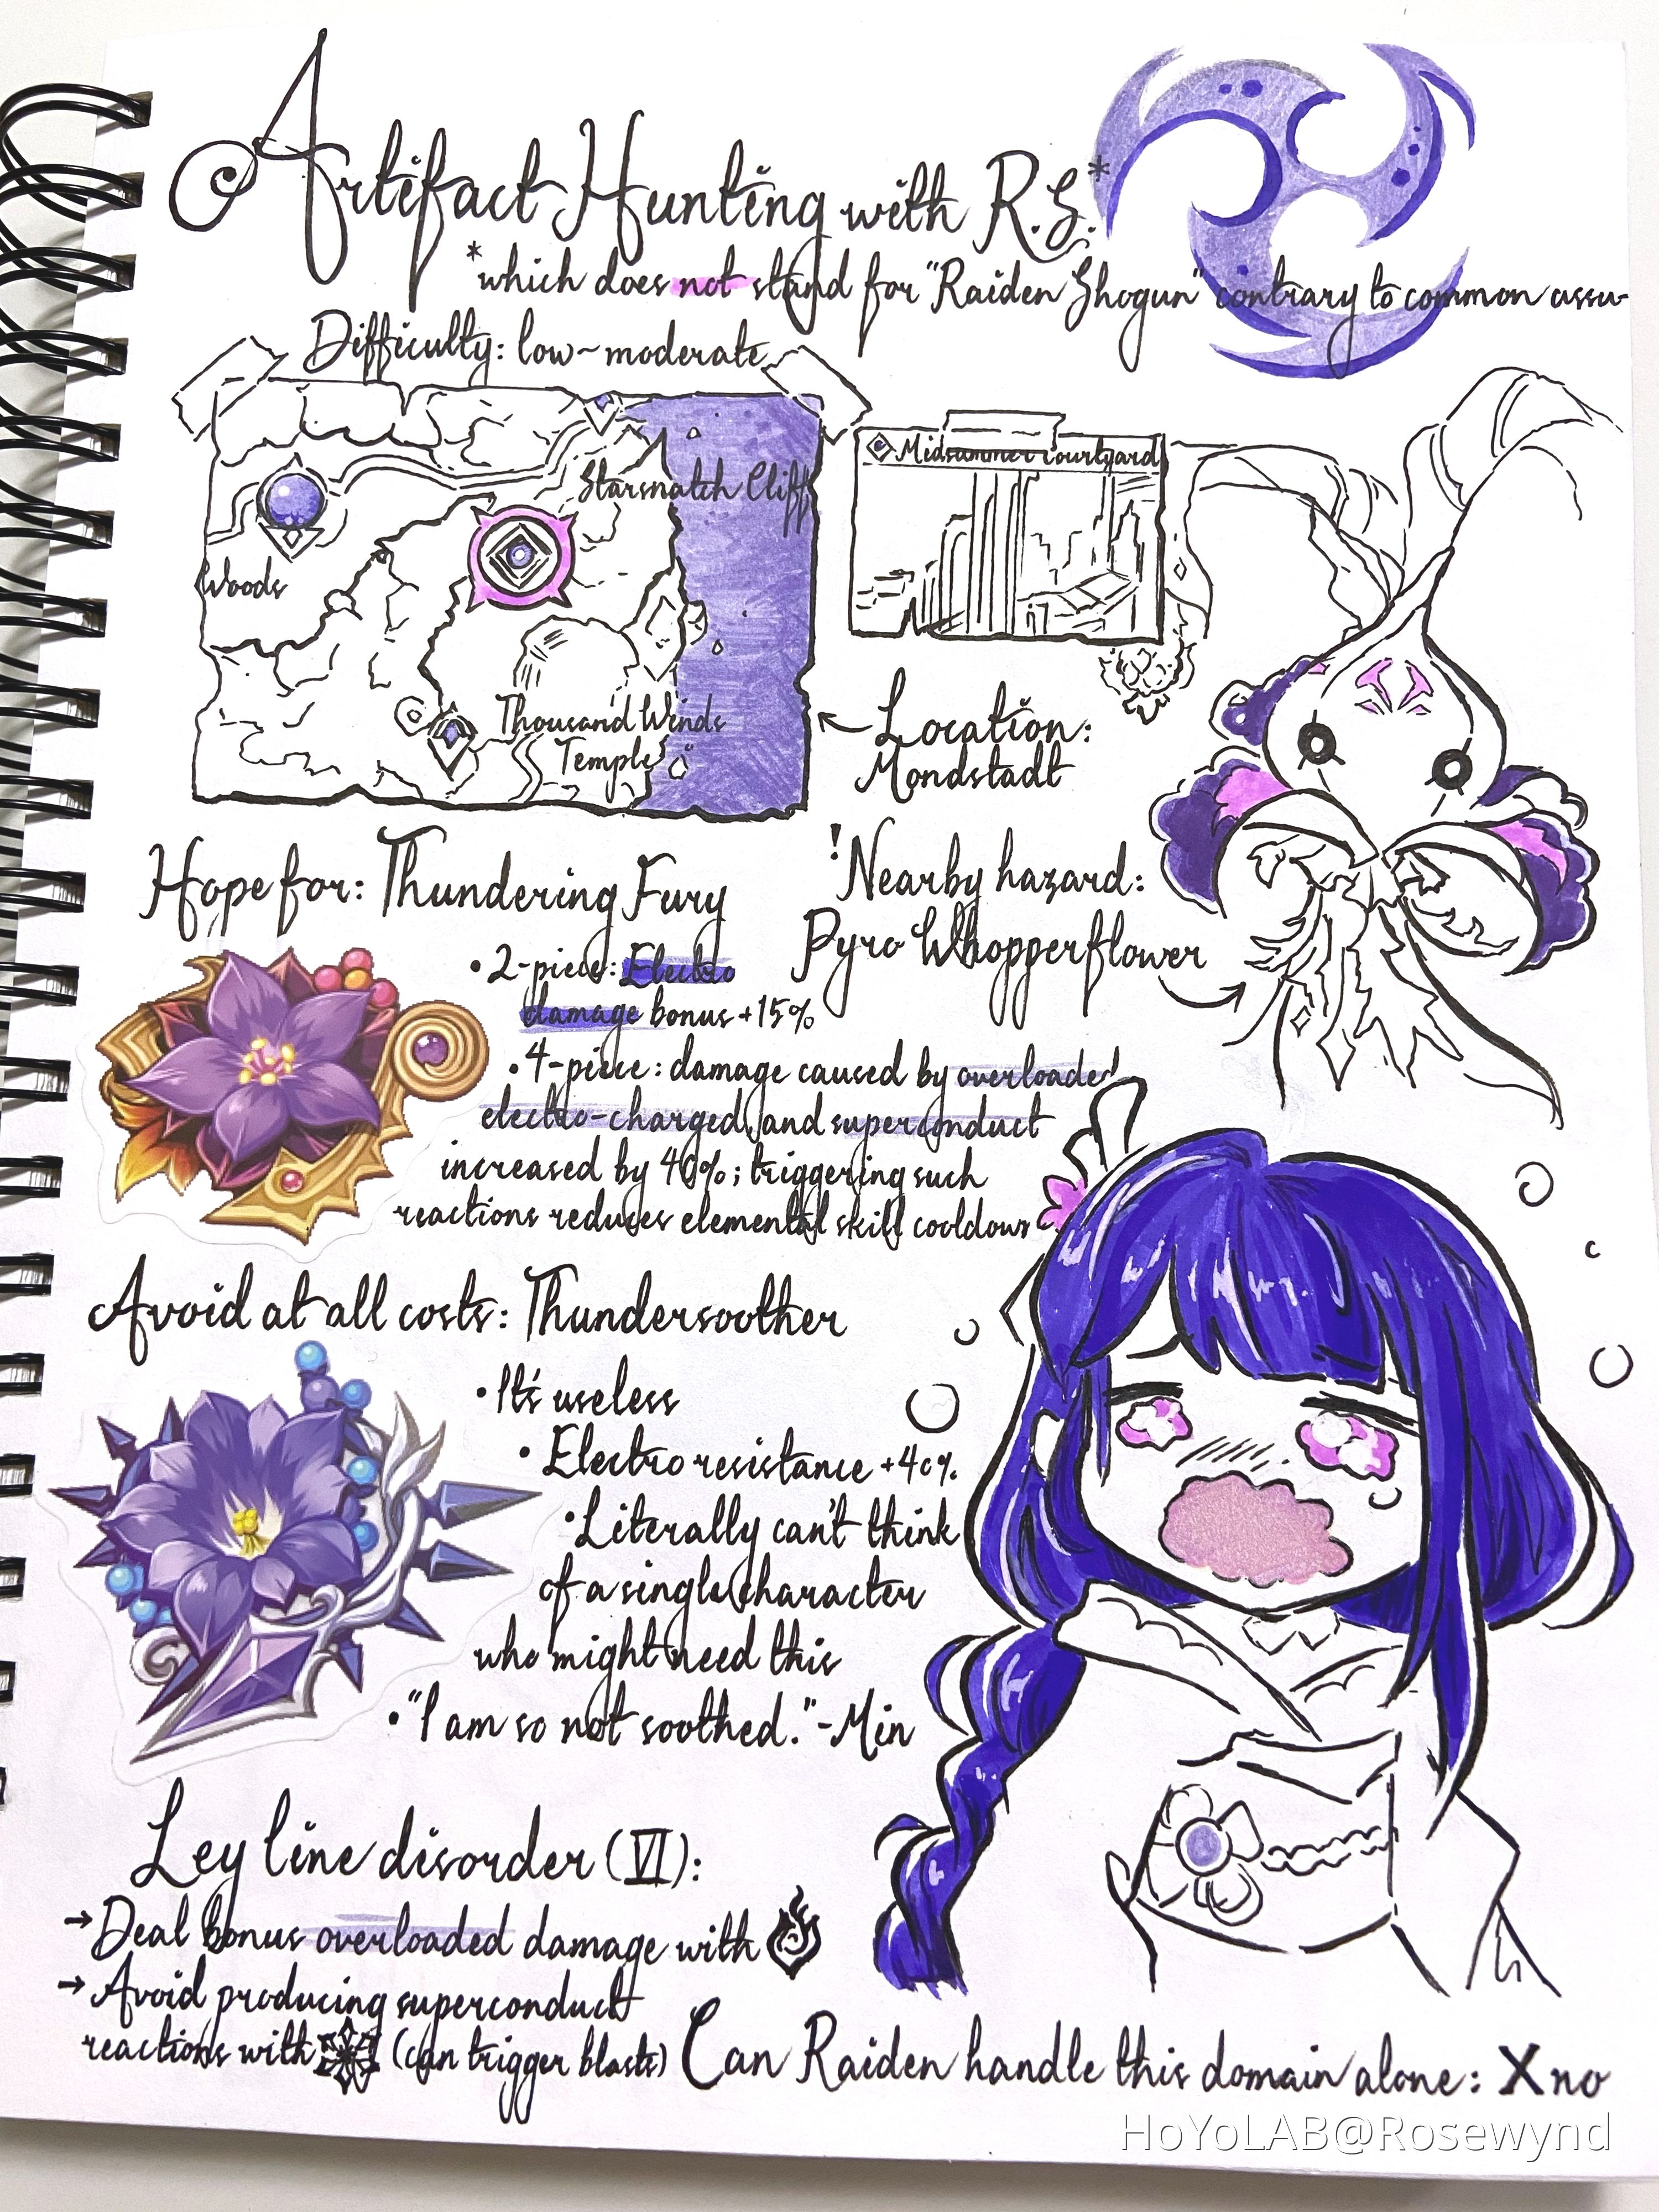 Artifact Hunting with R.S.*
*which does not stand for "Raiden Shogun" contrary to common assu-
Difficulty: low~moderate
Starsnatch Cliff
Woods
Thousand Winds
Temple
Midsummer Courtyard
Location:
Mondstadt
! Nearby hazard:
Pyro Whopperflower
Hope for: Thundering Fury
• 2-piece: Electro
damage bonus +15%
• 4-piece: damage caused by overloaded
electro-charged, and superconduct
increased by 40%; triggering such
reactions reduces elemental skill cooldown
Avoid at all costs: Thundersoother
• It's useless
• Electro resistance +40%
• Literally can't think
of a single character
who might need this
• "I am so not soothed." -Min
Ley line disorder (VI):
→ Deal bonus overloaded damage with
→ Avoid producing superconduct
reactions with (can trigger blasts)
Can Raiden handle this domain alone: X no
HoYoLAB@Rosewynd